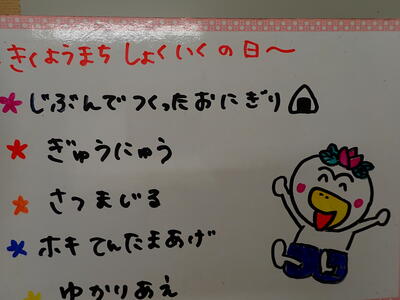 ききょうまち しょくいくの日～
じぶんでつくったおにぎり
ぎゅうにゅう
さつまじる
ホキてんたまあげ
ゆかりあえ